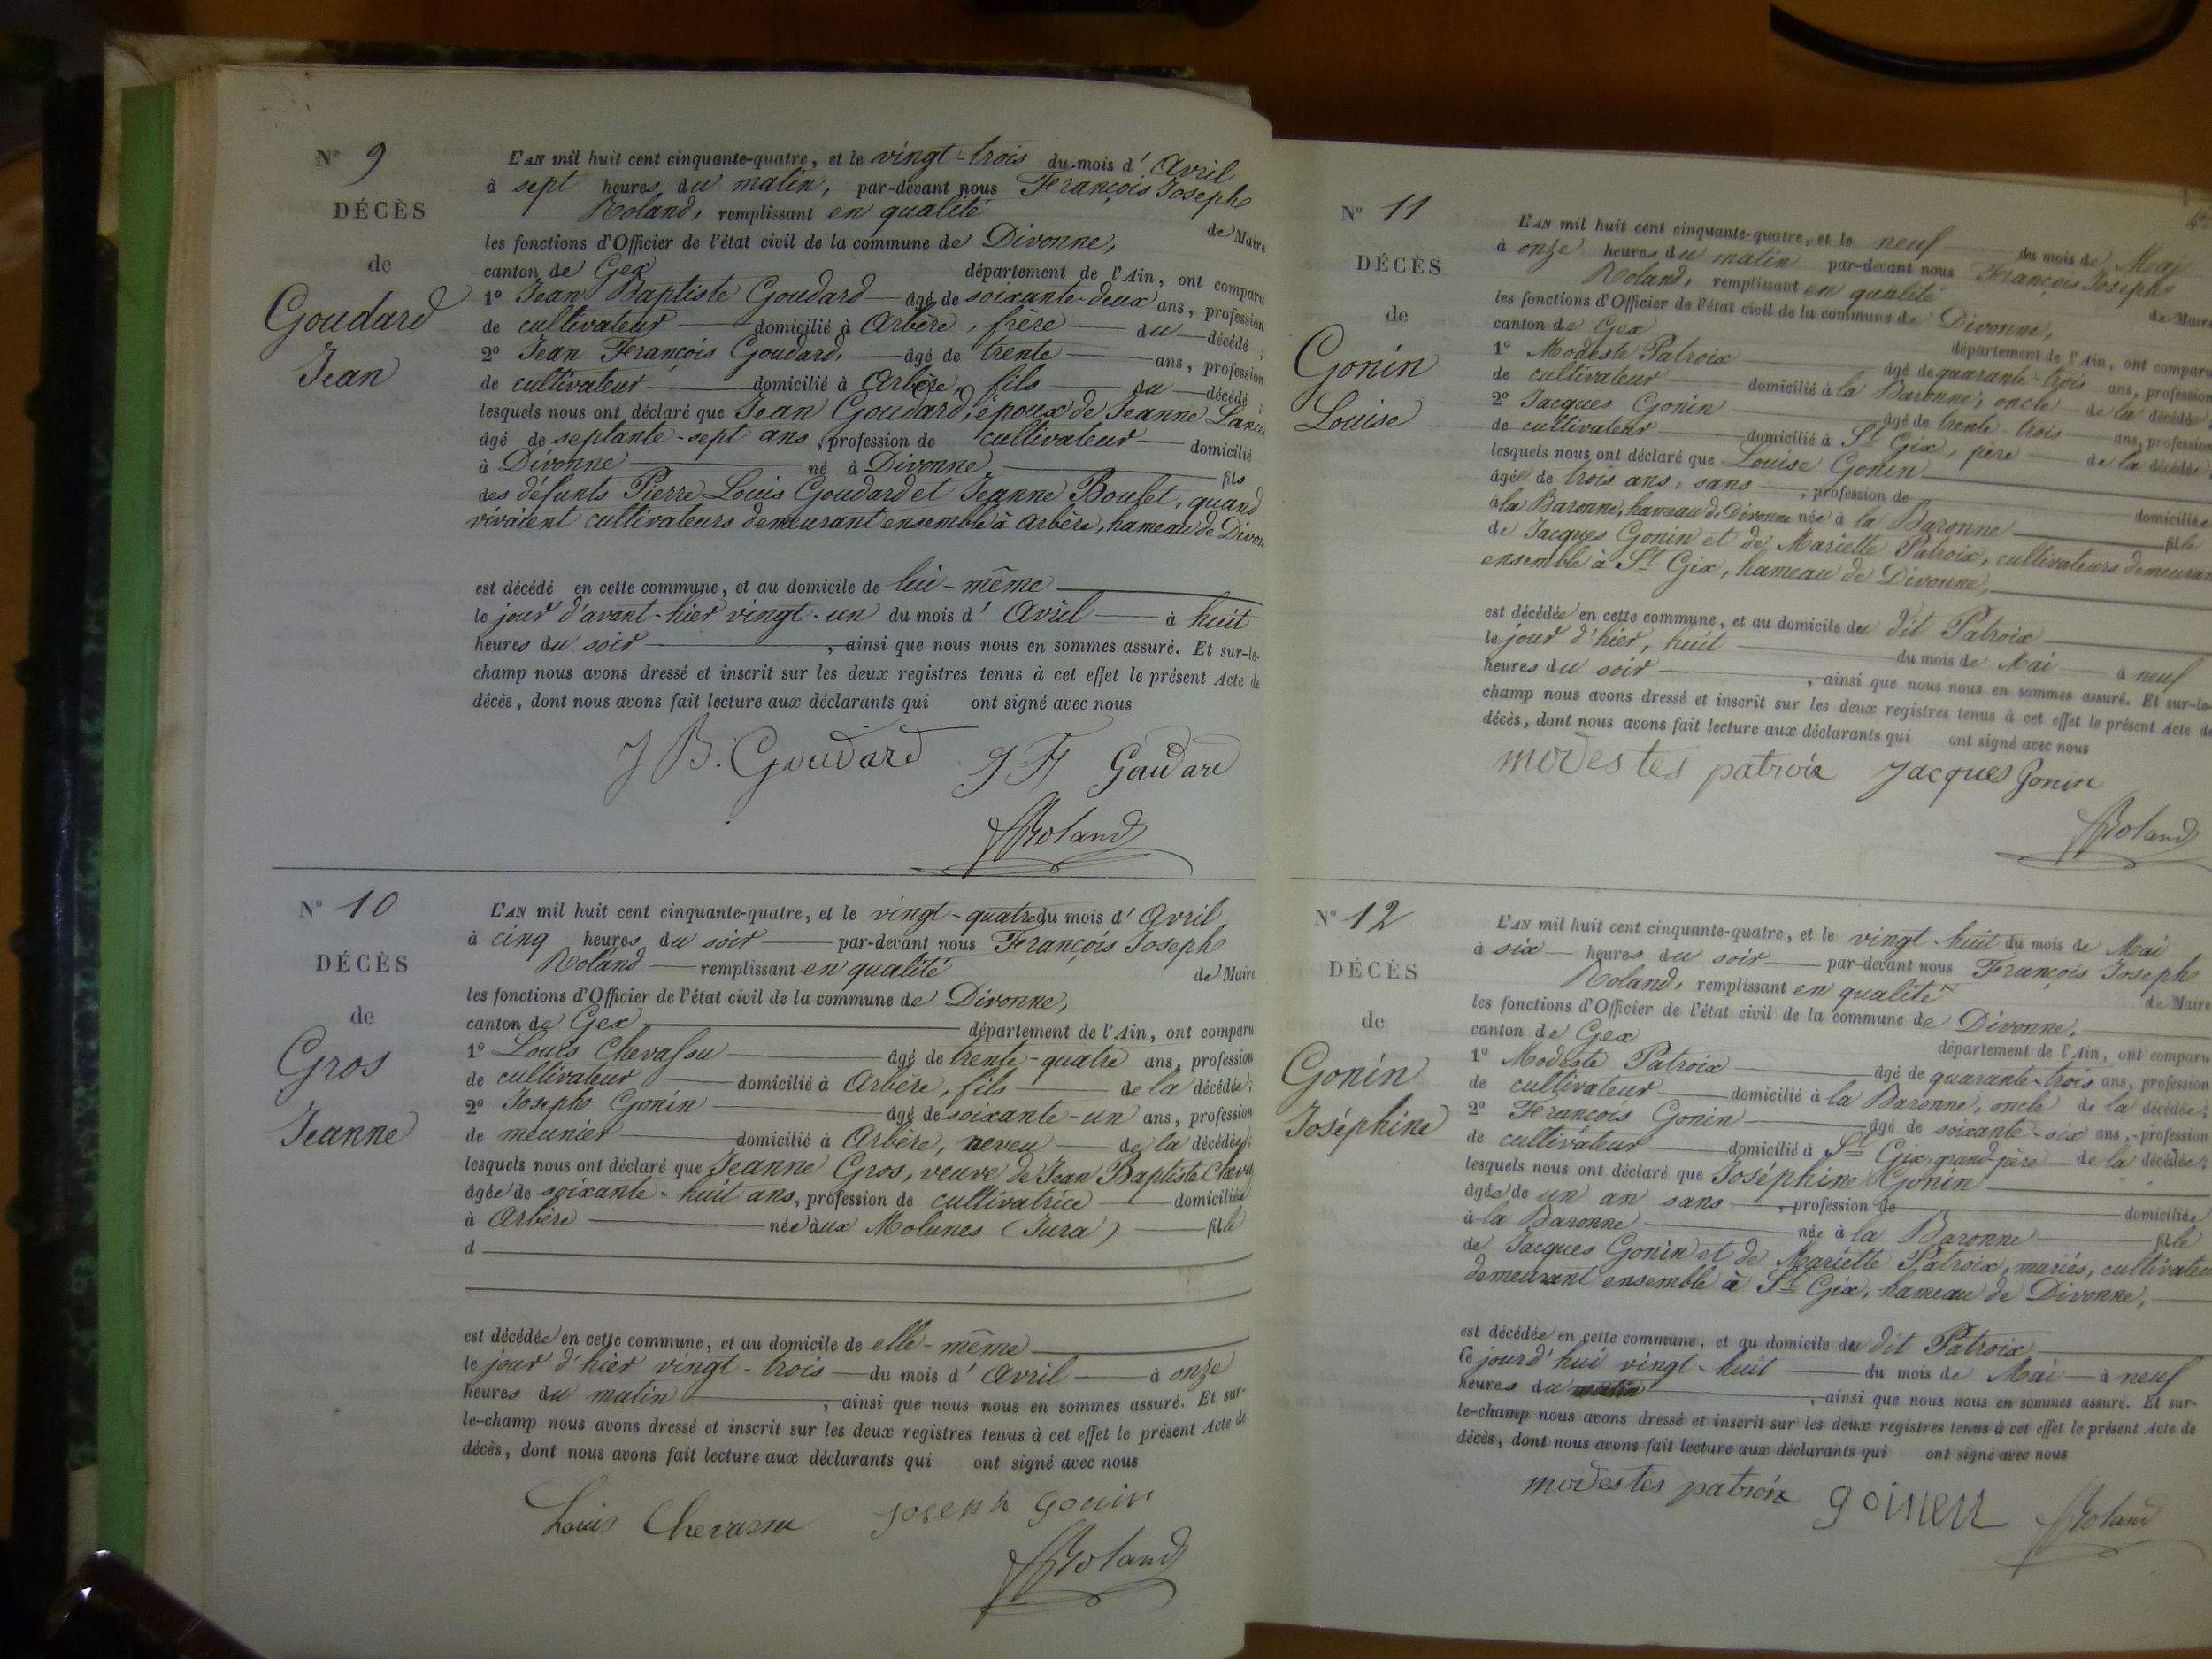 N° 9
DÉCÈS
de
Goudard
Jean
L'AN mil huit cent cinquante-quatre, et le vingt-trois du mois d' Avril
à sept heures du matin, par-devant nous François Joseph
Roland, remplissant en qualité de Maire
les fonctions d'Officier de l'état civil de la commune de Divonne,
canton de Gex département de l'Ain, ont comparu
1° Jean Baptiste Goudard âgé de soixante-deux ans, profession
de cultivateur domicilié à Arbère, frère du décédé ;
2° Jean François Goudard, âgé de trente ans, profession
de cultivateur domicilié à Arbère, fils du décédé ;
lesquels nous ont déclaré que Jean Goudard, époux de Jeanne
âgé de septante-sept ans, profession de cultivateur domicilié
à Divonne né à Divonne, fils
des défunts Pierre Louis Goudard et Jeanne Boufet, quand
vivaient cultivateurs demeurant ensemble à Arbère, hameau de Divon
est décédé en cette commune, et au domicile de lui-même
le jour d'avant-hier vingt-un du mois d' Avril à huit
heures du soir, ainsi que nous nous en sommes assuré. Et sur-le-
champ nous avons dressé et inscrit sur les deux registres tenus à cet effet le présent Acte de
décès, dont nous avons fait lecture aux déclarants qui ont signé avec nous
J B. Goudard J F Goudard
Roland
N° 10
DÉCÈS
de
Gros
Jeanne
L'AN mil huit cent cinquante-quatre, et le vingt-quatre du mois d' Avril
à cinq heures du soir par-devant nous François Joseph
Roland remplissant en qualité de Maire
les fonctions d'Officier de l'état civil de la commune de Divonne,
canton de Gex, département de l'Ain, ont comparu
1° Louis Chevassu âgé de trente-quatre ans, profession
de cultivateur domicilié à Arbère, fils de la décédée ;
2° Joseph Gonin âgé de soixante-un ans, profession
de meunier domicilié à Arbère, neveu de la décédée ;
lesquels nous ont déclaré que Jeanne Gros, veuve de Jean Baptiste Cheva
âgée de soixante-huit ans, profession de cultivatrice domiciliée
à Arbère née aux Molunes (Jura) fille
d
est décédée en cette commune, et au domicile de elle-même
le jour d'hier vingt-trois du mois d' Avril à onze
heures du matin, ainsi que nous nous en sommes assuré. Et sur-
le-champ nous avons dressé et inscrit sur les deux registres tenus à cet effet le présent Acte de
décès, dont nous avons fait lecture aux déclarants qui ont signé avec nous
Louis Chevassu Joseph Gonin
Roland
N° 11
DÉCÈS
de
Gonin
Louise
L'AN mil huit cent cinquante-quatre, et le neuf du mois de Mai
à onze heures du matin par-devant nous François Joseph
Roland, remplissant en qualité de Maire
les fonctions d'Officier de l'état civil de la commune de Divonne,
canton de Gex département de l'Ain, ont comparu
1° Modeste Patroix âgé de quarante-trois ans, profession
de cultivateur domicilié à la Baronne, oncle de la décédée ;
2° Jacques Gonin âgé de trente-trois ans, profession
de cultivateur domicilié à St Gix, père de la décédée ;
lesquels nous ont déclaré que Louise Gonin
âgée de trois ans, sans, profession de domiciliée
à la Baronne, hameau de Divonne née à la Baronne fille
de Jacques Gonin et de Mariette Patroix, cultivateurs demeurant
ensemble à St Gix, hameau de Divonne,
est décédée en cette commune, et au domicile du dit Patroix
le jour d'hier, huit du mois de Mai à neuf
heures du soir, ainsi que nous nous en sommes assuré. Et sur-le-
champ nous avons dressé et inscrit sur les deux registres tenus à cet effet le présent Acte de
décès, dont nous avons fait lecture aux déclarants qui ont signé avec nous
modestes patroix Jacques Gonin
Roland
N° 12
DÉCÈS
de
Gonin
Joséphine
L'AN mil huit cent cinquante-quatre, et le vingt-huit du mois de Mai
à six heures du soir par-devant nous François Joseph
Roland, remplissant en qualité de Maire
les fonctions d'Officier de l'état civil de la commune de Divonne,
canton de Gex département de l'Ain, ont comparu
1° Modeste Patroix âgé de quarante-trois ans, profession
de cultivateur domicilié à la Baronne, oncle de la décédée ;
2° François Gonin âgé de soixante-six ans, profession
de cultivateur domicilié à St Gix, grand-père de la décédée ;
lesquels nous ont déclaré que Joséphine Gonin
âgée de un an sans, profession de domiciliée
à la Baronne née à la Baronne fille
de Jacques Gonin et de Mariette Patroix, mariés, cultivateu
demeurant ensemble à St Gix, hameau de Divonne,
est décédée en cette commune, et au domicile du dit Patroix
ce jourd'hui vingt-huit du mois de Mai à neuf
heures du matin, ainsi que nous nous en sommes assuré. Et sur-
le-champ nous avons dressé et inscrit sur les deux registres tenus à cet effet le présent Acte de
décès, dont nous avons fait lecture aux déclarants qui ont signé avec nous
modestes patroix goinen Roland